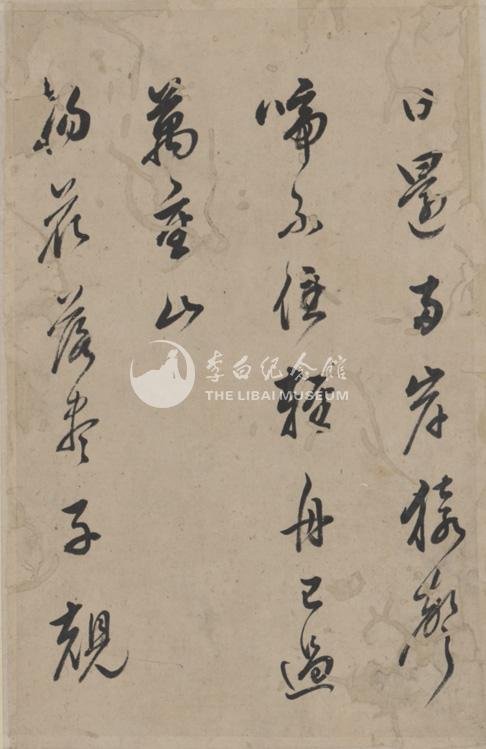 日還兩岸猿聲
啼不住輕舟已過
萬重山
楊花落盡子規
李白纪念館
THE LIBAI MUSEUM